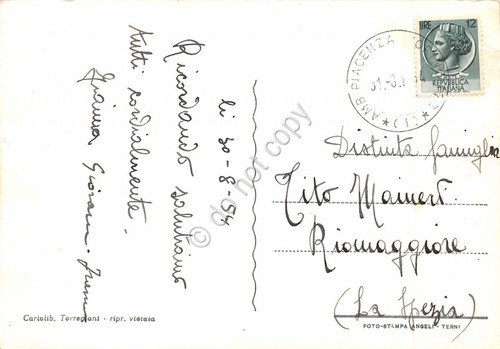 li 30-8-54
Ricordando salutiamo
tutti cordialmente.
Gianna Giovanna
Cartolib. Torregiani - ripr. vietata
LIRE 12
REPUBBLICA
ITALIANA
AMB PIACENZA
31.8.
(1)
Distinta famiglia
Tito Mainert
Riomaggiore
(La Spezia)
FOTO-STAMPA ANGELI - TERNI
do not copy